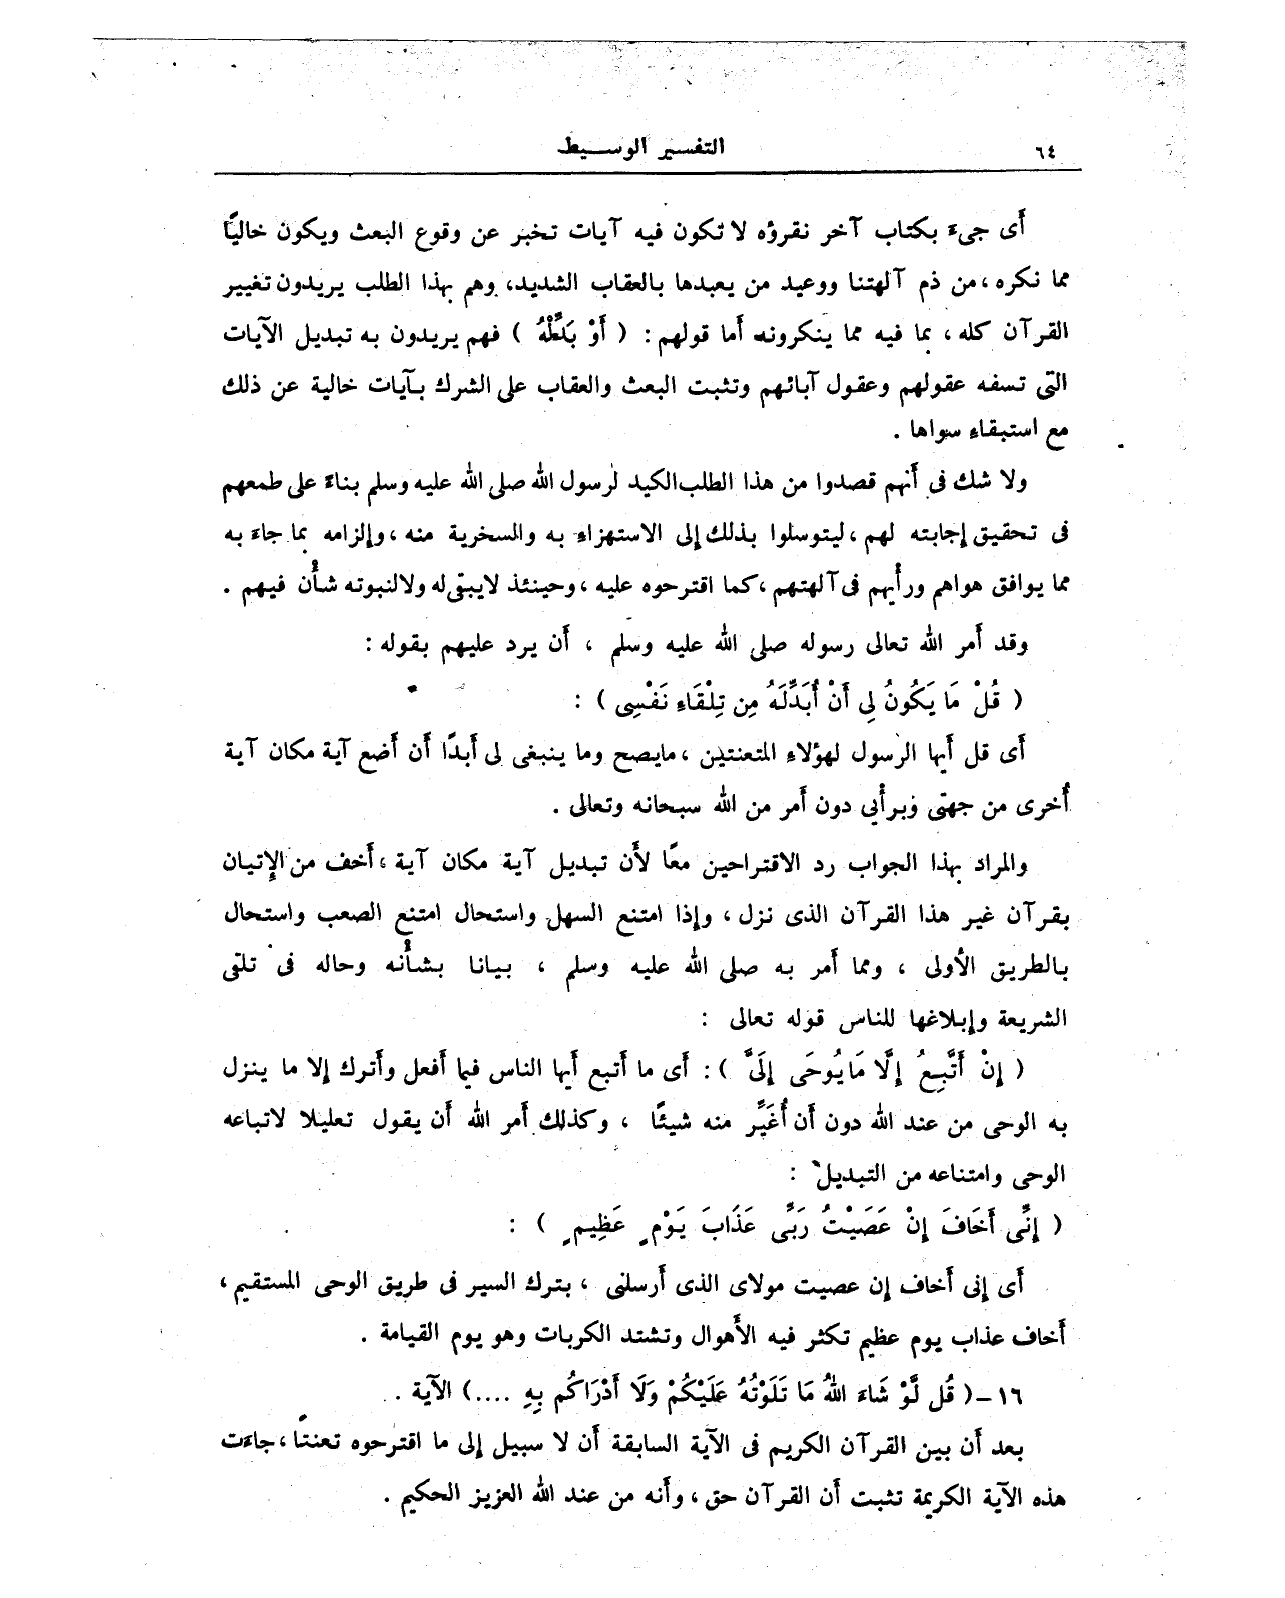 ٦٤
التفسير الوسيط
أَى جىءَ بكتاب آخر نقرؤه لا تكون فيه آيات تخبر عن وقوع البعث ويكون خاليًا
مما نكره ، من ذم آلهتنا ووعيد من يعبدها بالعقاب الشديد، وهم بهذا الطلب يريدون تغيير
القرآن كله ، بما فيه مما ينكرونه أما قولهم : ( أَوْ بَدِّلْهُ ) فهم يريدون به تبديل الآيات
التى تسفه عقولهم وعقول آبائهم وتثبت البعث والعقاب على الشرك بآيات خالية عن ذلك
مع استبقاءِ سواها .
ولا شك فى أَنهم قصدوا من هذا الطلب الكيد لرسول الله صلى الله عليه وسلم بناءً على طمعهم
فى تحقيق إجابته لهم ، ليتوسلوا بذلك إلى الاستهزاءِ به والسخرية منه ، وإلزامه بما جاءَ به
مما يوافق هواهم ورأْيهم فى آلهتهم ، كما اقترحوه عليه ، وحينئذ لايبقى له ولالنبوته شأْن فيهم .
وقد أَمر الله تعالى رسوله صلى الله عليه وسلم ، أَن يرد عليهم بقوله :
( قُلْ مَا يَكُونُ لِى أَنْ أُبَدِّلَهُ مِن تِلْقَاءِ نَفْسِى ) :
أَى قل أَيها الرسول لهؤلاءِ المتعنتين ، مايصح وما ينبغى لى أَبدًا أَن أَضع آية مكان آية
أُخرى من جهتى وبرأْيى دون أَمر من الله سبحانه وتعالى .
والمراد بهذا الجواب رد الاقتراحين معًا لأَن تبديل آية مكان آية ، أَخف من الإِتيان
بقرآن غير هذا القرآن الذى نزل ، وإذا امتنع السهل واستحال امتنع الصعب واستحال
بالطريق الأَولى ، ومما أَمر به صلى الله عليه وسلم ، بيانا بشأْنه وحاله فى تلقى
الشريعة وإبلاغها للناس قوله تعالى :
( إِنْ أَتَّبِعُ إِلَّا مَا يُوحَى إِلَىَّ ) : أَى ما أَتبع أَيها الناس فيما أَفعل وأَترك إلا ما ينزل
به الوحى من عند الله دون أَن أُغَيِّر منه شيئًا ، وكذلك أَمر الله أَن يقول تعليلا لاتباعه
الوحى وامتناعه من التبديل :
( إِنِّى أَخَافُ إِنْ عَصَيْتُ رَبِّى عَذَابَ يَوْمٍ عَظِيمٍ ) :
أَى إنى أَخاف إن عصيت مولاى الذى أَرسلنى ، بترك السير فى طريق الوحى المستقيم ،
أَخاف عذاب يوم عظيم تكثر فيه الأَهوال وتشتد الكربات وهو يوم القيامة .
١٦ – ( قُل لَّوْ شَاءَ اللهُ مَا تَلَوْتُهُ عَلَيْكُمْ وَلَا أَدْرَاكُم بِهِ .... ) الآية .
بعد أَن بين القرآن الكريم فى الآية السابقة أَن لا سبيل إلى ما اقترحوه تعنتًا ، جاءَت
هذه الآية الكريمة تثبت أَن القرآن حق ، وأَنه من عند الله العزيز الحكيم .